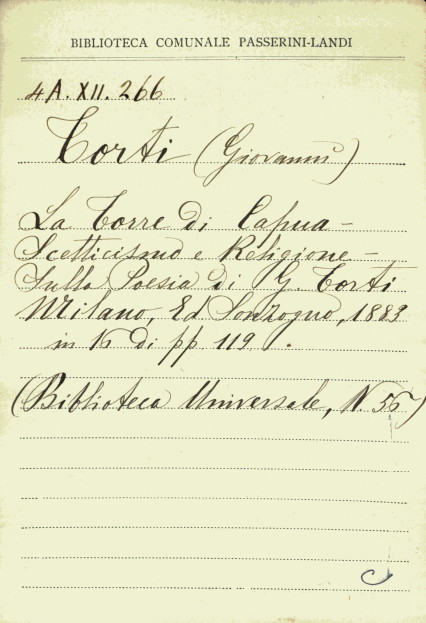 BIBLIOTECA COMUNALE PASSERINI-LANDI
4A. XII. 266
Torti (Giovanni)
La Torre di Capua -
Scetticismo e Religione -
Sulla Poesia di G. Torti
Milano, Ed Sonzogno, 1883
in 16 di pp 119.
(Biblioteca Universale, N. 56)